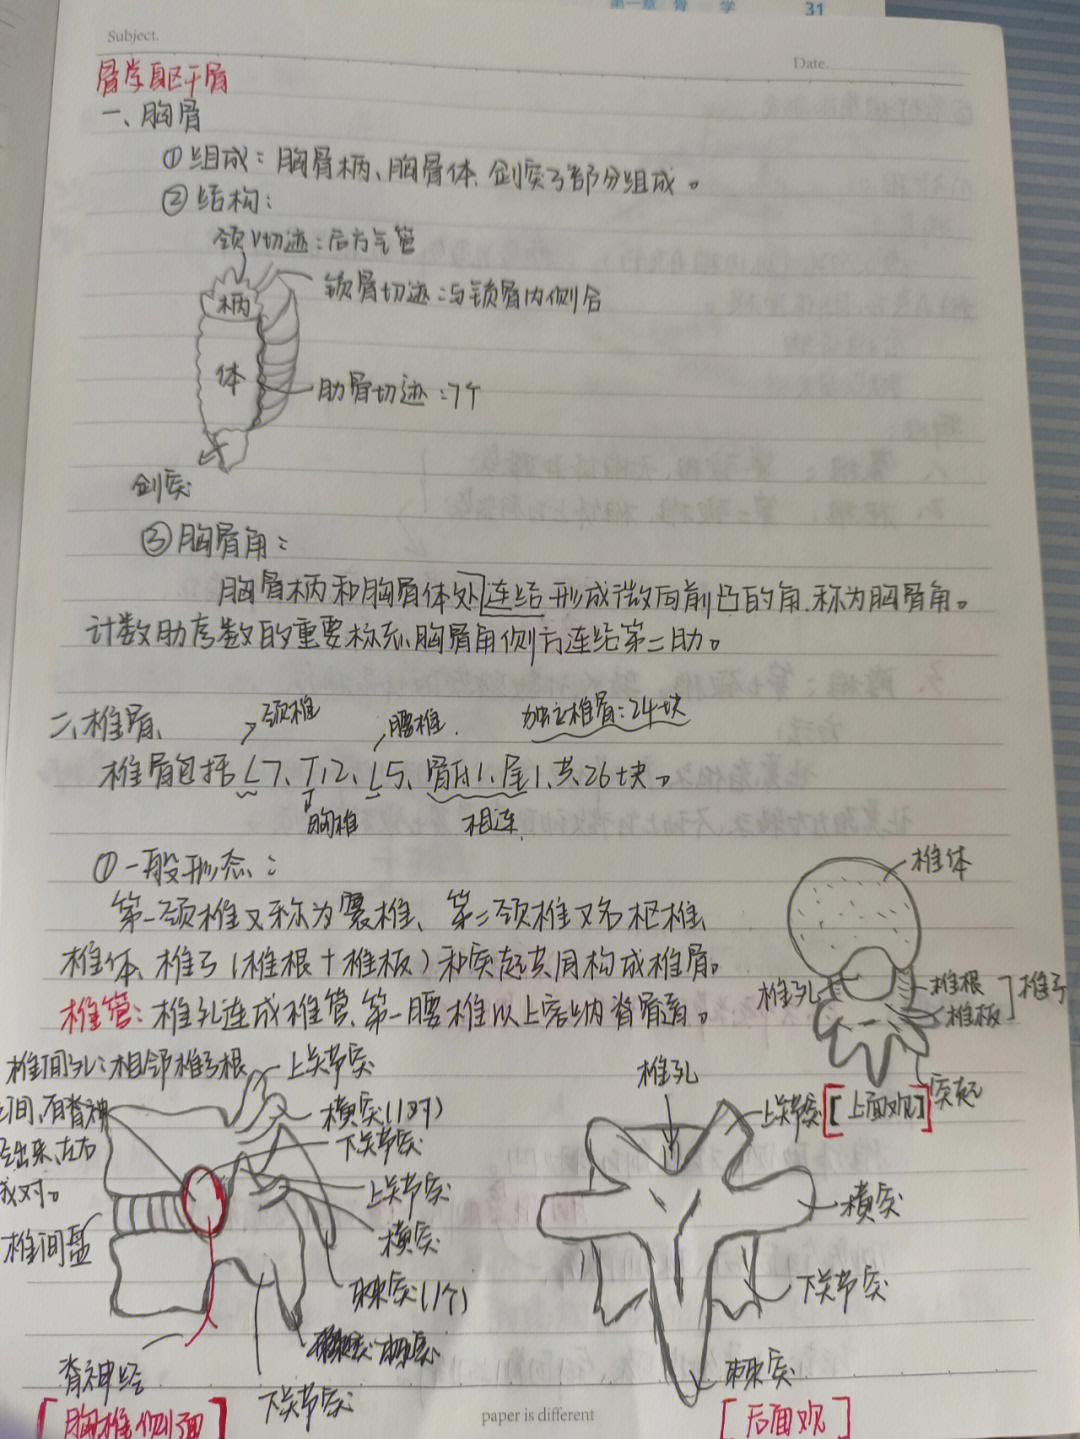 第一章 骨 学 31
Subject.
Date.
骨学躯干骨
一、胸骨
①组成：胸骨柄、胸骨体、剑突3部分组成。
②结构：
颈V切迹：后方气管
锁骨切迹：与锁骨内侧合
柄
体
肋骨切迹：7个
剑突
③胸骨角：
胸骨柄和胸骨体处连结形成微向前凸的角，称为胸骨角。
计数肋序数的重要标志，胸骨角侧方连结第二肋。
二、椎骨、
颈椎
腰椎.
独立椎骨：24块
椎骨包括 L7、T12、L5、骶1、尾1、共26块。
胸椎
相连
①一般形态：
第一颈椎又称为寰椎、第二颈椎又名枢椎、
椎体、椎弓（椎根+椎板）和突起共同构成椎骨。
椎管：椎孔连成椎管、第一腰椎以上容纳脊髓。
椎体
椎孔
椎根
椎板
椎弓
突起
[上面观]
椎间孔：相邻椎弓根
之间，有脊神
经出来，左右
成对。
椎间盘
上关节突
横突(1对)
下关节突
上关节突
横突
棘突(1个)
棘突
下关节突
脊神经
[胸椎侧面]
椎孔
上关节突
横突
下关节突
棘突
[后面观]
paper is different